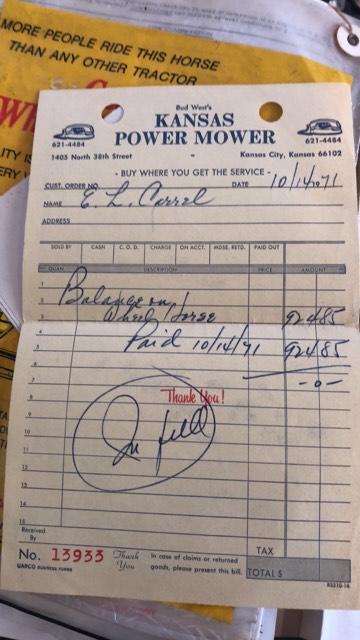 MORE PEOPLE RIDE THIS HORSE
THAN ANY OTHER TRACTOR
Bud West's
KANSAS
POWER MOWER
621-4484
621-4484
1405 North 38th Street - Kansas City, Kansas 66102
- BUY WHERE YOU GET THE SERVICE -
CUST. ORDER NO. DATE 10/14 1971
NAME E. L. Correl
ADDRESS
SOLD BY CASH C. O. D. CHARGE ON ACCT. MDSE. RETD. PAID OUT
QUAN. DESCRIPTION PRICE AMOUNT
1
2 Balance on
3 Wheel Horse 924 85
4 Paid 10/14/71 924 85
5
6
7 -0-
8 Thank You!
9
10 In full
11
12
13
14
15
Received
By
No. 13933 Thank You In case of claims or returned goods, please present this bill.
TAX
TOTALS
UARCO BUSINESS FORMS